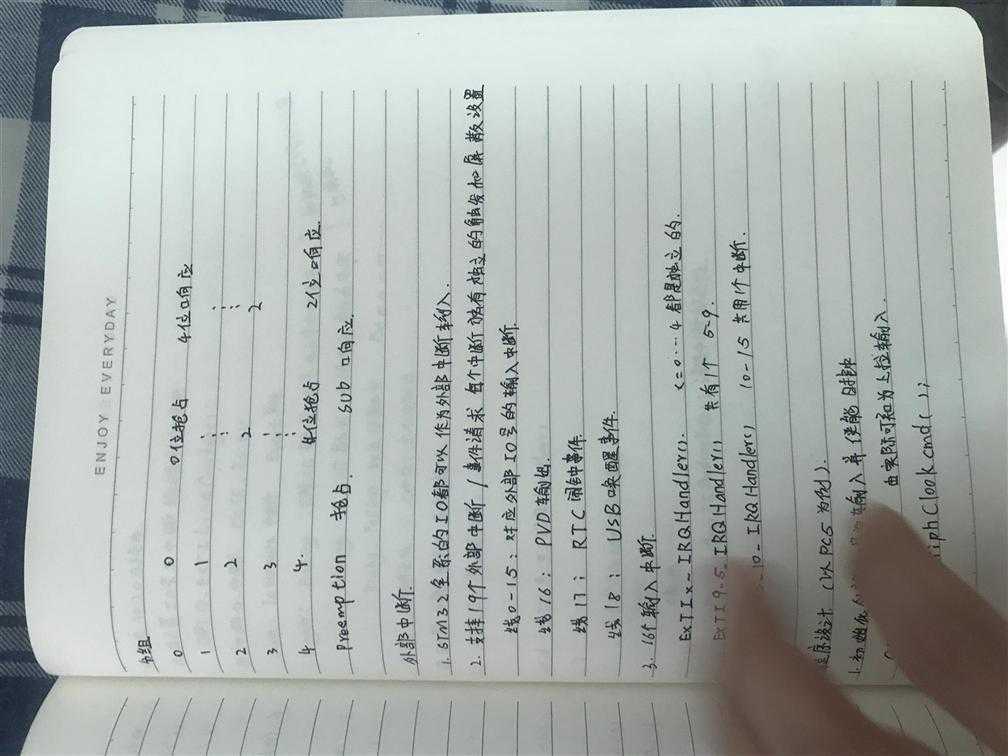 ENJOY EVERYDAY
分组
0 0 0位抢占 4位响应
1 1 ⋮ ⋮
2 2 2 ⋮
3 3 ⋮ 2
4 4. ⋮
位抢占 2位响应.
preemption 抢占. sub 响应.
外部中断.
1. STM32全系的IO都可以作为外部中断输入.
2. 支持19个外部中断/事件请求 每个中断 都有独立的触发和屏蔽设置
线0-15: 对应外部IO号的输入中断.
线16: PVD输出.
线17: RTC闹钟事件.
线18: USB唤醒事件.
3. 16个输入中断.
EXTIx_IRQHandler(). x=0····4 都是独立的.
EXTI9-5_IRQHandler() 共有1个 5-9.
10_IRQHandler() 10-15 共用1个中断.
程序设计 (以PC5为例).
1. 初始化 输入并使能时钟
由实际可知为上拉输入.
iphClookcmd( );